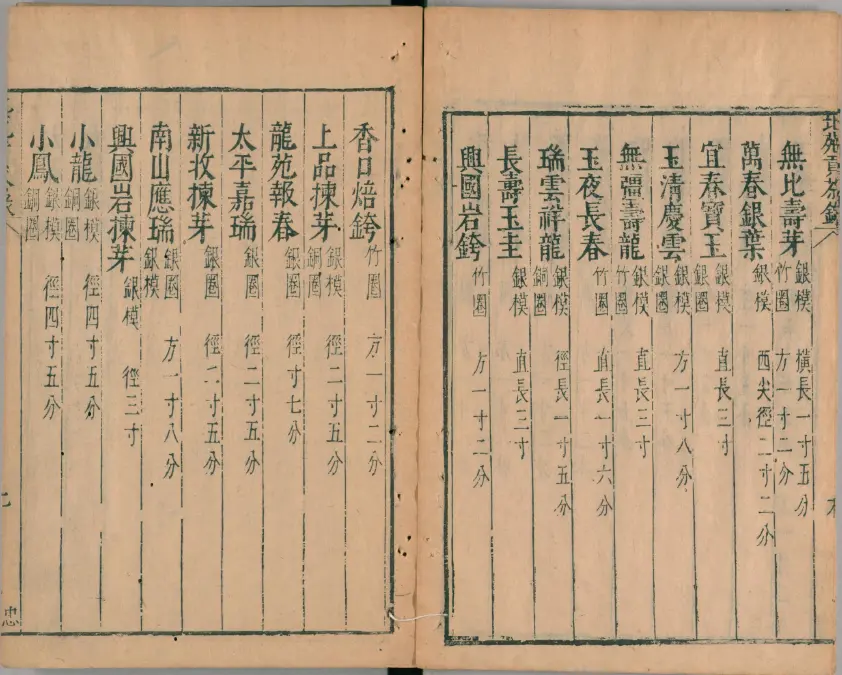 苑貢茶錄
無比壽芽 銀模 橫長一寸五分 竹圈 方一寸二分
萬春銀葉 銀模 西尖徑二寸二分
宜春寶玉 銀模 銀圈 直長三寸
玉清慶雲 銀模 銀圈 方一寸八分
無疆壽龍 銀模 竹圈 直長三寸
玉夜長春 竹圈 直長一寸六分
瑞雲祥龍 銀模 銅圈 徑長一寸五分
長壽玉圭 銀模 直長三寸
興國岩銙 竹圈 方一寸二分
香口焙銙 竹圈 方一寸二分
上品揀芽 銀模 銅圈 徑二寸五分
龍苑報春 銀圈 徑寸七分
太平嘉瑞 銀圈 徑二寸五分
新收揀芽 銀圈 徑二寸五分
南山應瑞 銀圈 銀模 方一寸八分
興國岩揀芽 銀模 徑三寸
小龍 銀模 銅圈 徑四寸五分
小鳳 銀模 銅圈 徑四寸五分
忠